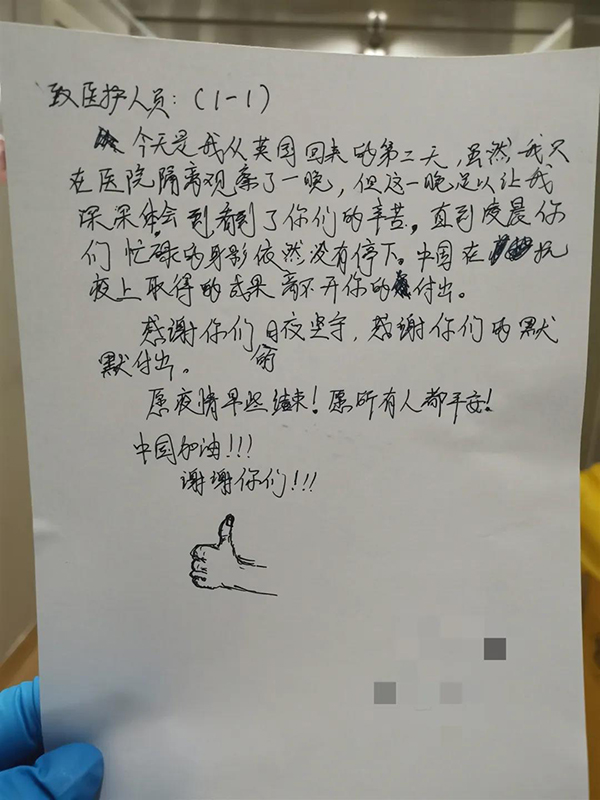 致医护人员：（1-1）
今天是我从英国回来的第二天，虽然我只
在医院隔离观察了一晚，但这一晚足以让我
深深体会到看到了你们的辛苦。直到凌晨你
们忙碌的身影依然没有停下。中国在抗
疫上取得的成果离不开你的付出。
感谢你们日夜坚守，感谢你们的默
默付出。的
愿疫情早些结束！愿所有人都平安！
中国加油！！！
谢谢你们！！！